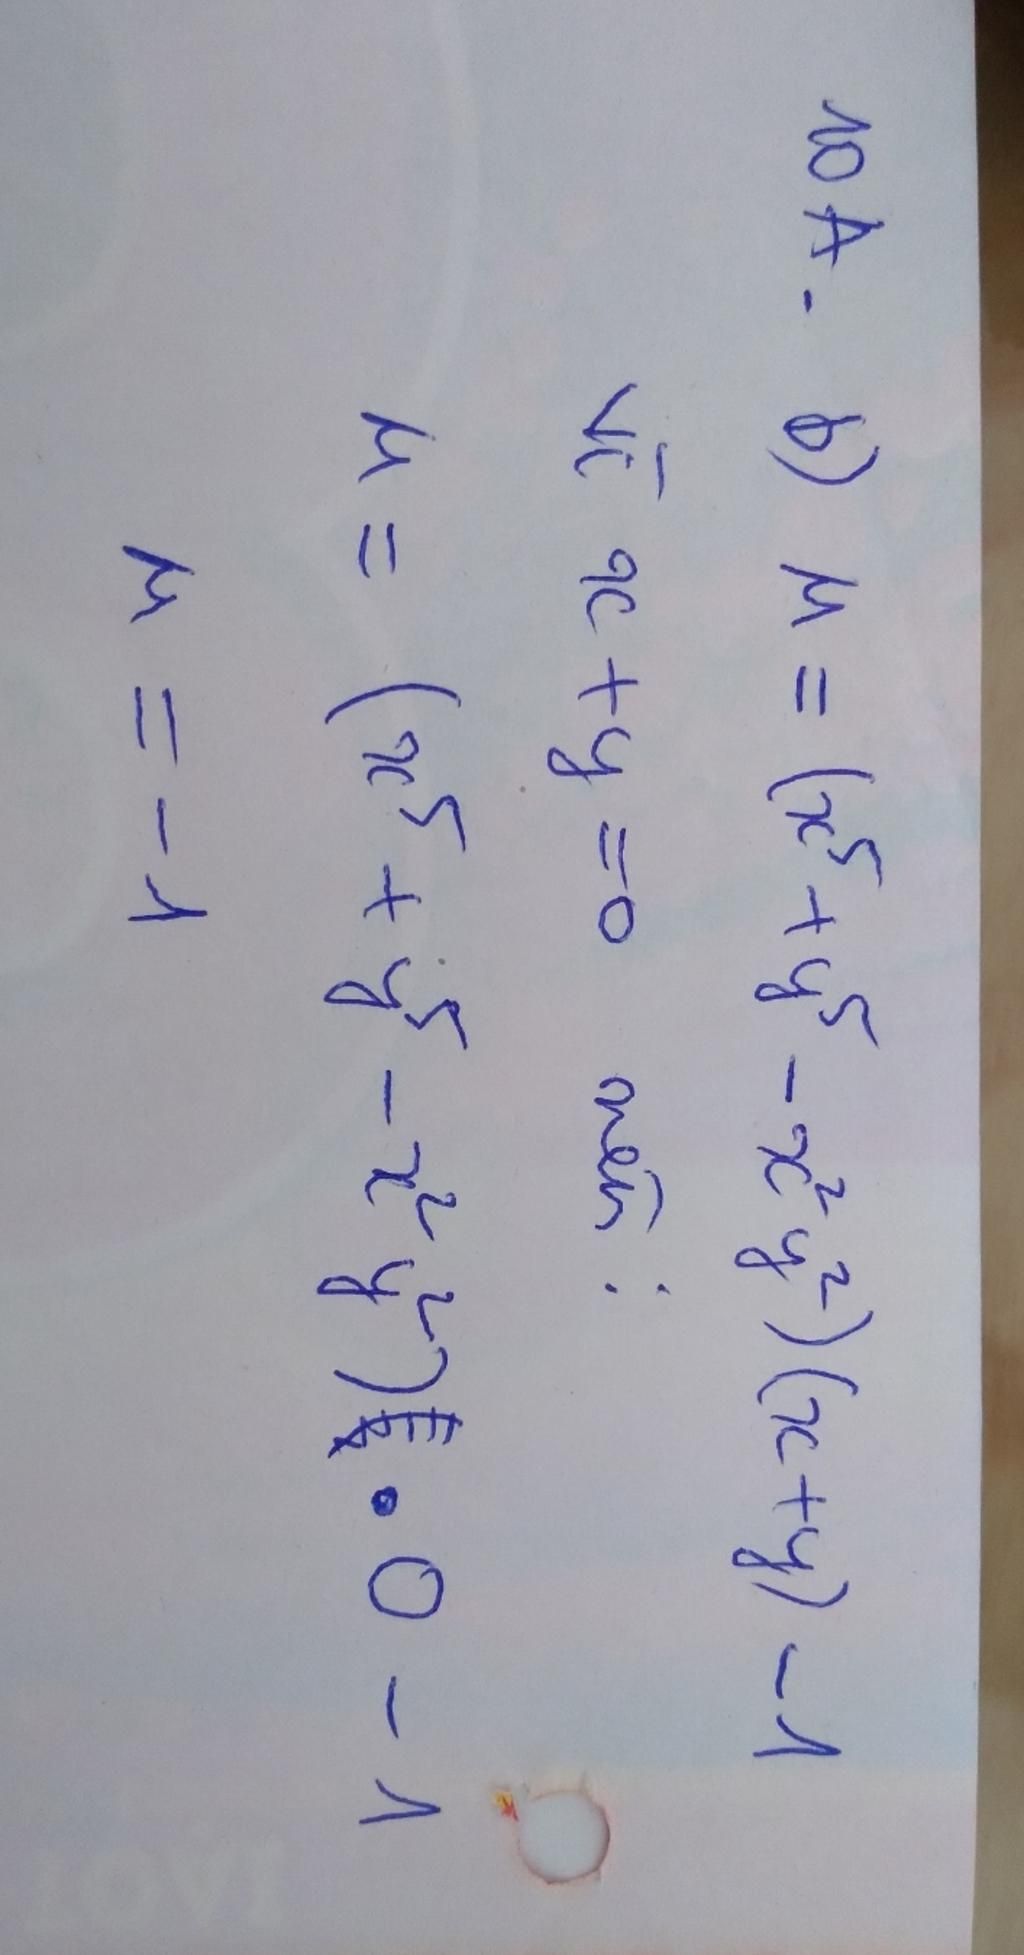 10A. b) M = (x⁵ + y⁵ - x²y²)(x+y) - 1
Vì x + y = 0 nên :
M = (x⁵ + y⁵ - x²y²) . 0 - 1
M = -1